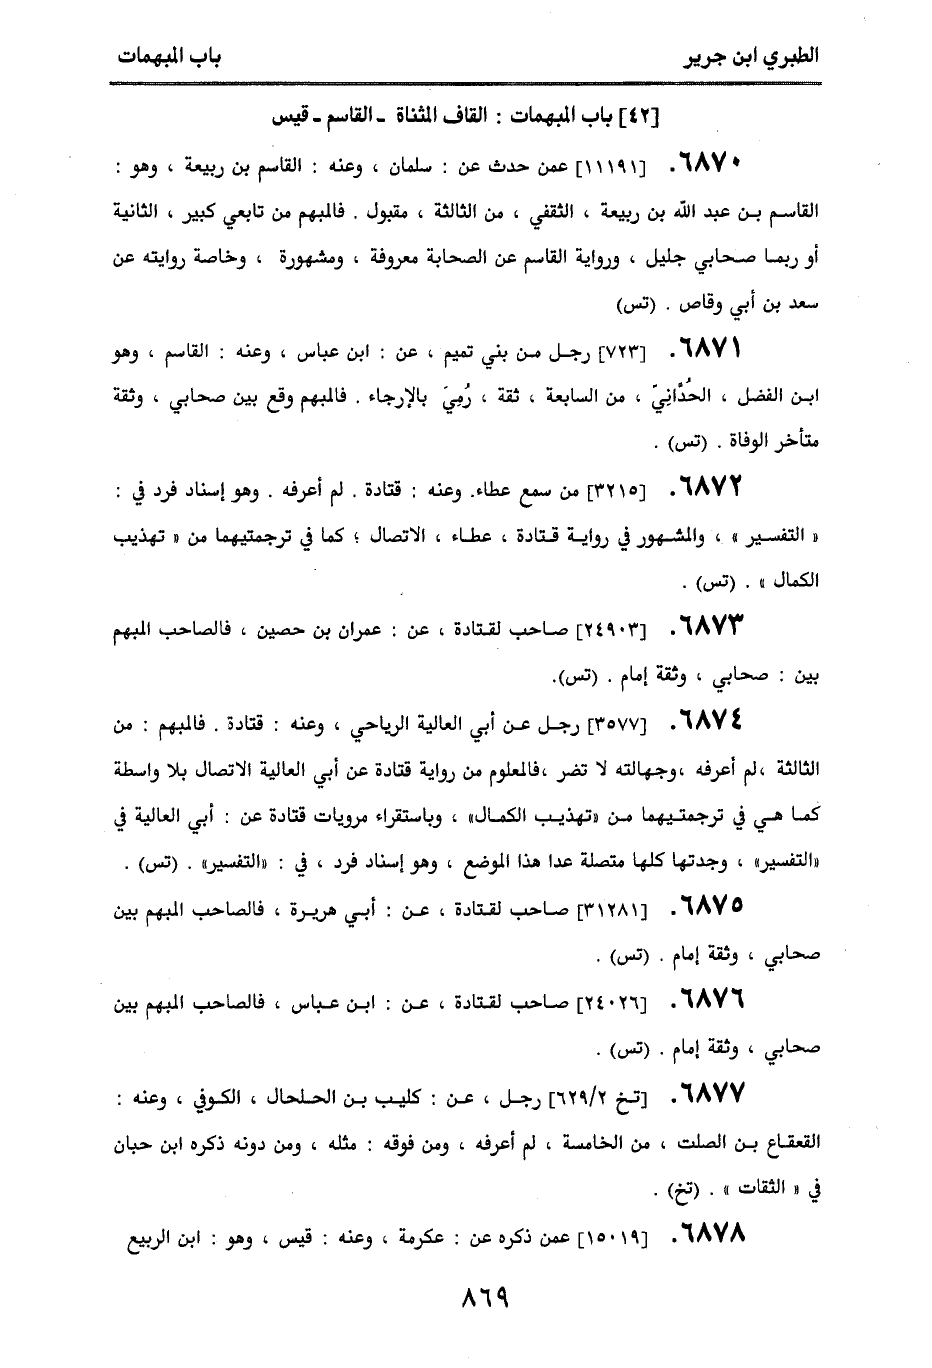 الطبري ابن جرير
باب المبهمات
[٤٢] باب المبهمات : القاف المثناة ـ القاسم ـ قيس
٦٨٧٠. [١١١٩١] عمن حدث عن : سلمان ، وعنه : القاسم بن ربيعة ، وهو :
القاسم بن عبد الله بن ربيعة ، الثقفي ، من الثالثة ، مقبول . فالمبهم من تابعي كبير ، الثانية
أو ربما صحابي جليل ، ورواية القاسم عن الصحابة معروفة ، ومشهورة ، وخاصة روايته عن
سعد بن أبي وقاص . (تس)
٦٨٧١. [٧٢٣] رجل من بني تميم ، عن : ابن عباس ، وعنه : القاسم ، وهو
ابن الفضل ، الحُدَّانِيّ ، من السابعة ، ثقة ، رُمِيَ بالإرجاء . فالمبهم وقع بين صحابي ، وثقة
متأخر الوفاة . (تس) .
٦٨٧٢. [٣٢١٥] من سمع عطاء. وعنه : قتادة . لم أعرفه . وهو إسناد فرد في :
« التفسير » ، والمشهور في رواية قتادة ، عطاء ، الاتصال ؛ كما في ترجمتيهما من « تهذيب
الكمال » . (تس) .
٦٨٧٣. [٢٤٩٠٣] صاحب لقتادة ، عن : عمران بن حصين ، فالصاحب المبهم
بين : صحابي ، وثقة إمام . (تس).
٦٨٧٤. [٣٥٧٧] رجل عن أبي العالية الرياحي ، وعنه : قتادة . فالمبهم : من
الثالثة ،لم أعرفه ،وجهالته لا تضر ،فالمعلوم من رواية قتادة عن أبي العالية الاتصال بلا واسطة
كما هي في ترجمتيهما من «تهذيب الكمال» ، وباستقراء مرويات قتادة عن : أبي العالية في
«التفسير» ، وجدتها كلها متصلة عدا هذا الموضع ، وهو إسناد فرد ، في : «التفسير» . (تس) .
٦٨٧٥. [٣١٢٨١] صاحب لقتادة ، عن : أبي هريرة ، فالصاحب المبهم بين
صحابي ، وثقة إمام . (تس) .
٦٨٧٦. [٢٤٠٢٦] صاحب لقتادة ، عن : ابن عباس ، فالصاحب المبهم بين
صحابي ، وثقة إمام . (تس) .
٦٨٧٧. [تخ ٦٢٩/٢] رجل ، عن : كليب بن الحلحال ، الكوفي ، وعنه :
القعقاع بن الصلت ، من الخامسة ، لم أعرفه ، ومن فوقه : مثله ، ومن دونه ذكره ابن حبان
في « الثقات » . (تخ) .
٦٨٧٨. [١٥٠١٩] عمن ذكره عن : عكرمة ، وعنه : قيس ، وهو : ابن الربيع
٨٦٩